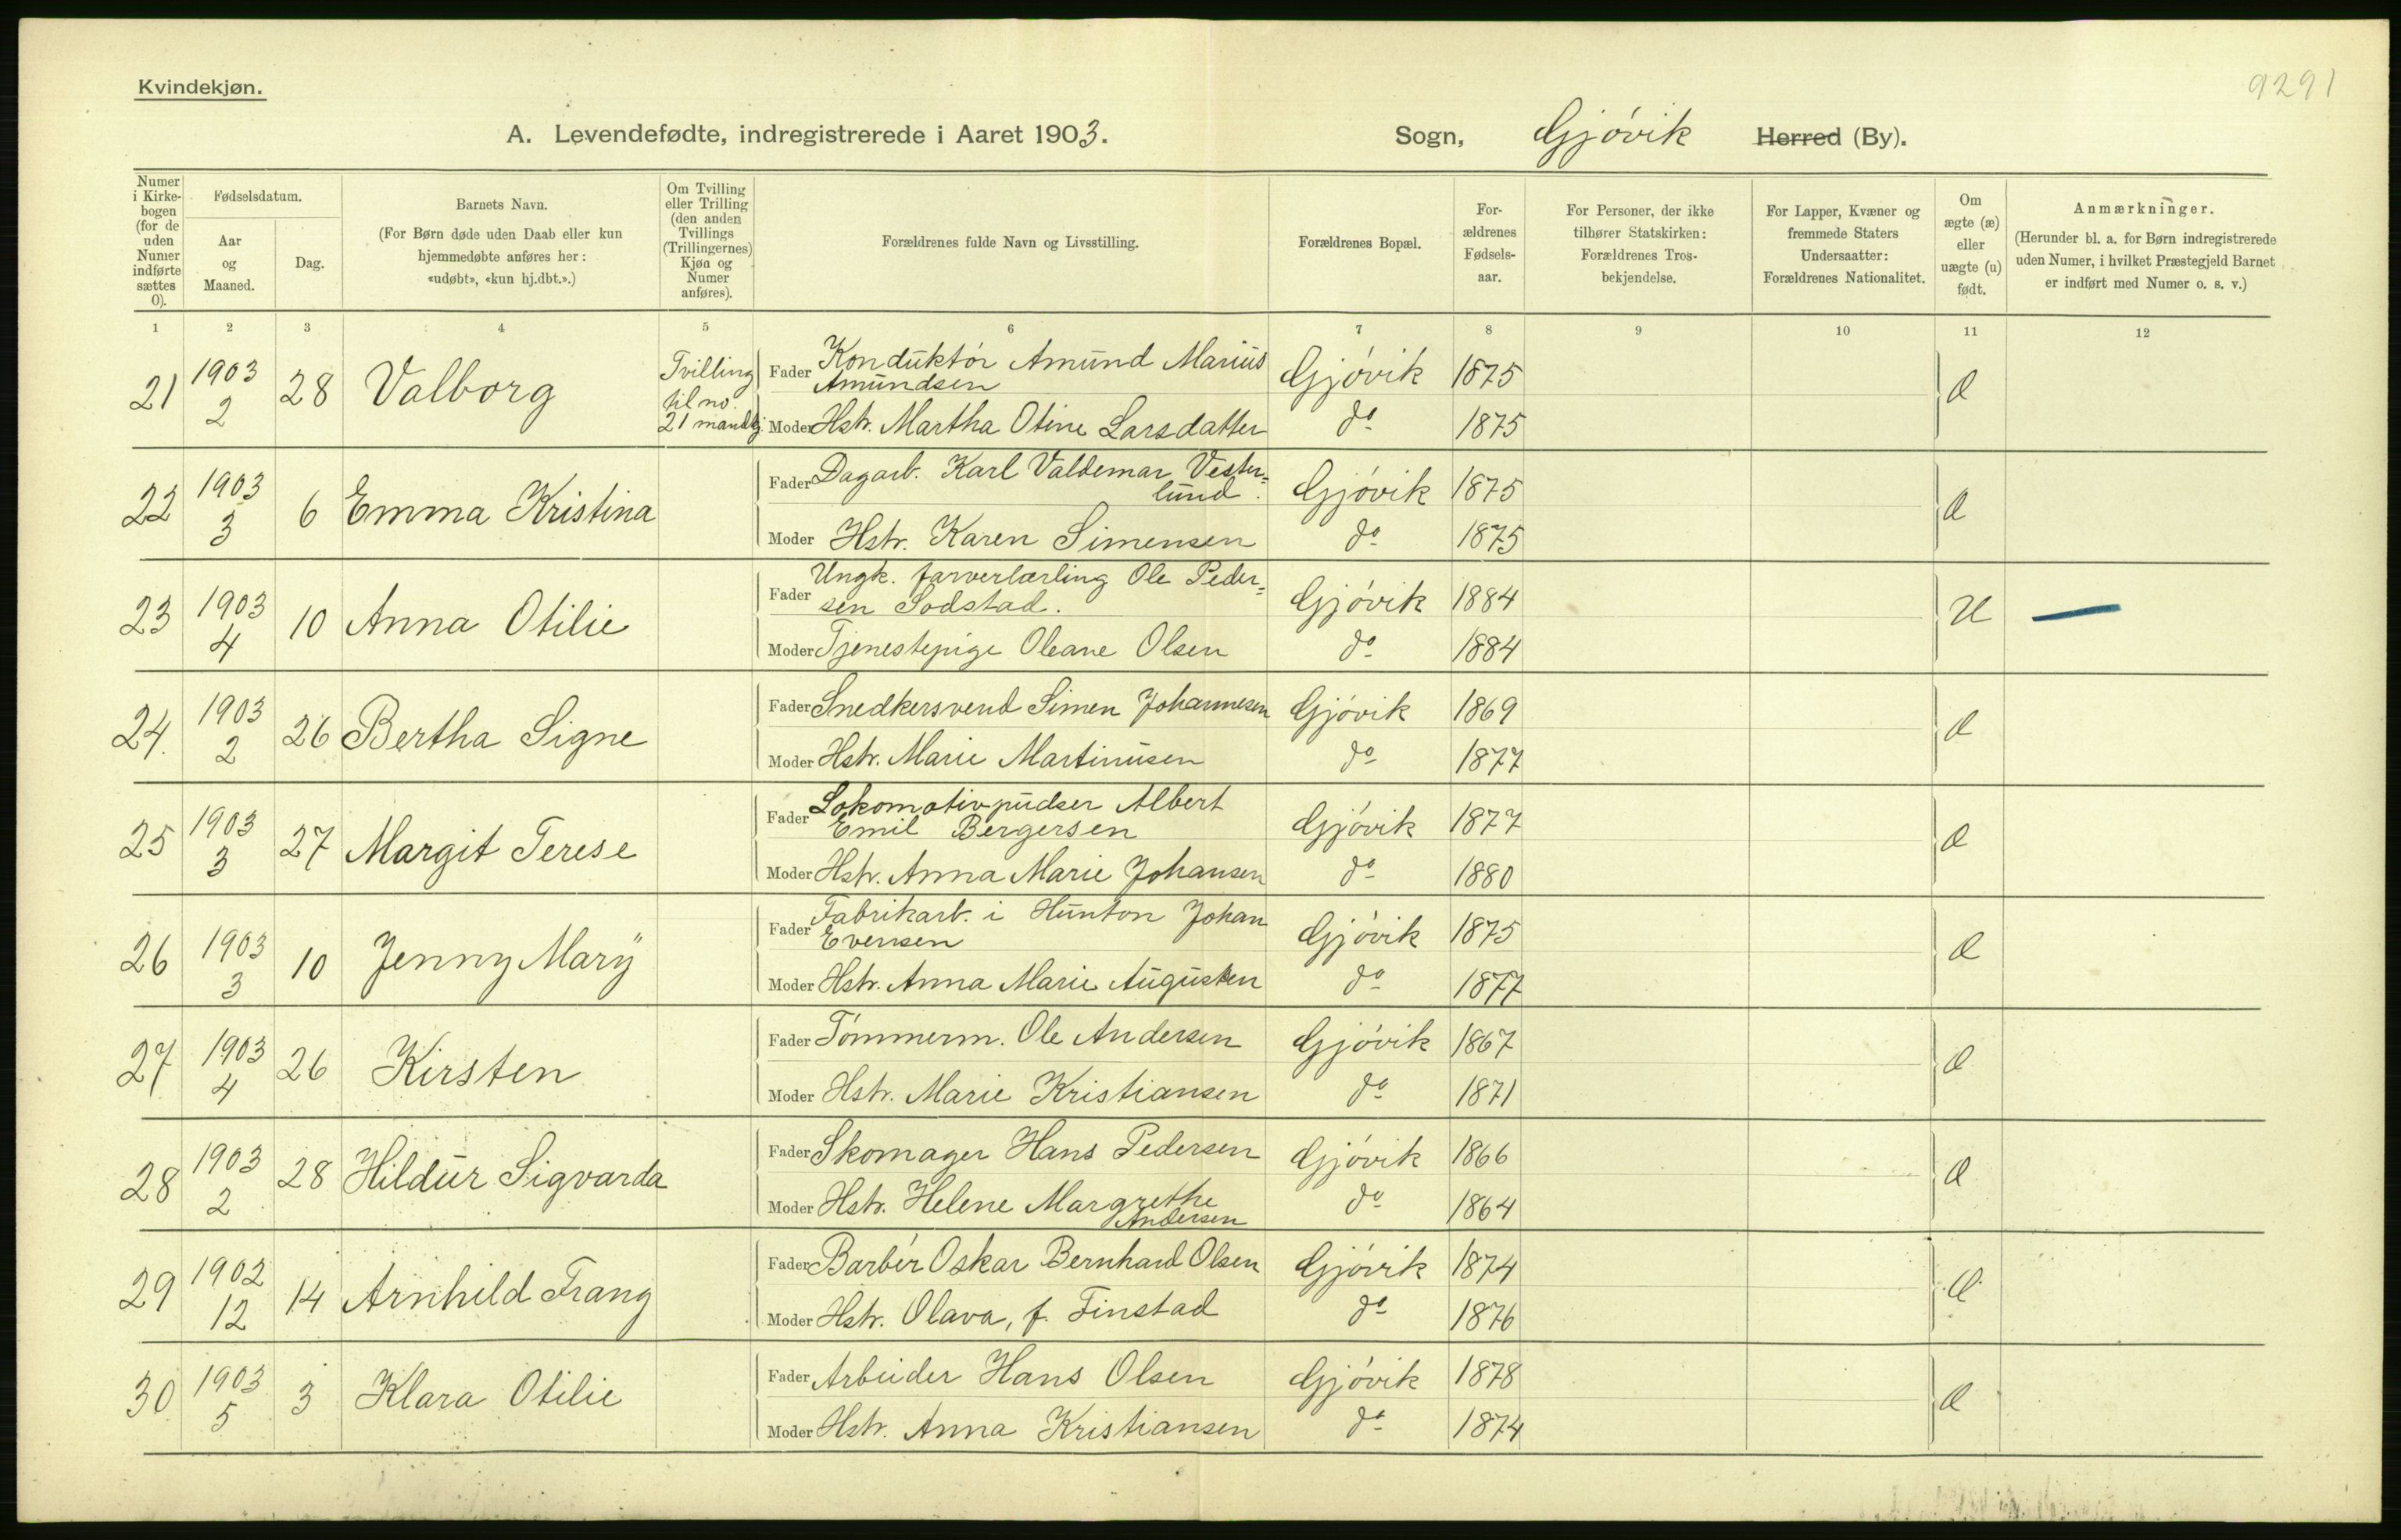 9291
Kvindekjøn.
A. Levendefødte, indregistrerede i Aaret 1903. Sogn, Gjøvik Herred (By).
Numer i Kirkebogen (for de uden Numer indførte sættes 0).
Fødselsdatum.
Aar og Maaned.
Dag.
Barnets Navn.
(For Børn døde uden Daab eller kun
hjemmedøbte anføres her:
«udøbt», «kun hj.dbt.».)
Om Tvilling
eller Trilling
(den anden
Tvillings
(Trillingernes)
Kjøn og
Numer
anføres).
Forældrenes fulde Navn og Livsstilling.
Forældrenes Bopæl.
For-
ældrenes
Fødsels-
aar.
For Personer, der ikke
tilhører Statskirken:
Forældrenes Tros-
bekjendelse.
For Lapper, Kvæner og
fremmede Staters
Undersaatter:
Forældrenes Nationalitet.
Om
ægte (æ)
eller
uægte (u)
født.
Anmærkninger.
(Herunder bl. a. for Børn indregistrerede
uden Numer, i hvilket Præstegjeld Barnet
er indført med Numer o. s. v.)
1 2 3 4 5 6 7 8 9 10 11 12
21 1903 2 28 Valborg Tvilling til no. 21 mandkj.
Fader Konduktør Amund Marius Amundsen Gjøvik 1875 Æ
Moder Hstr. Martha Otine Larsdatter do 1875
22 1903 3 6 Emma Kristina
Fader Dagarb. Karl Valdemar Vester=lund. Gjøvik 1875 Æ
Moder Hstr. Karen Simensen do 1875
23 1903 4 10 Anna Otilie
Fader Ungk. farverlærling Ole Peder=sen Sodstad. Gjøvik 1884 U
Moder Tjenestepige Oleane Olsen do 1884
24. 1903 2 26 Bertha Signe
Fader Snedkersvend Simen Johannesen Gjøvik 1869 Æ
Moder Hstr. Marie Martinusen do 1877
25 1903 3 27 Margit Terese
Fader Lokomotivpudser Albert Emil Bergersen Gjøvik 1877 Æ
Moder Hstr. Anna Marie Johansen do 1880
26 1903 3 10 Jenny Mary
Fader Fabrikarb. i Hunton Johan Evensen Gjøvik 1875 Æ
Moder Hstr. Anna Marie Augusten do 1877
27 1903 4 26 Kirsten
Fader Tømmerm. Ole Andersen Gjøvik 1867 Æ
Moder Hstr. Marie Kristiansen do 1871
28 1903 2 28 Hildur Sigvarda
Fader Skomager Hans Pedersen Gjøvik 1866 Æ
Moder Hstr. Helene Margrethe Andersen do 1864
29 1902 12 14 Arnhild Frang
Fader Barbér Oskar Bernhard Olsen Gjøvik 1874 Æ
Moder Hstr. Olava, f. Finstad do 1876
30 1903 5 3 Klara Otilie
Fader Arbeider Hans Olsen Gjøvik 1878 Æ
Moder Hstr. Anna Kristiansen do 1874